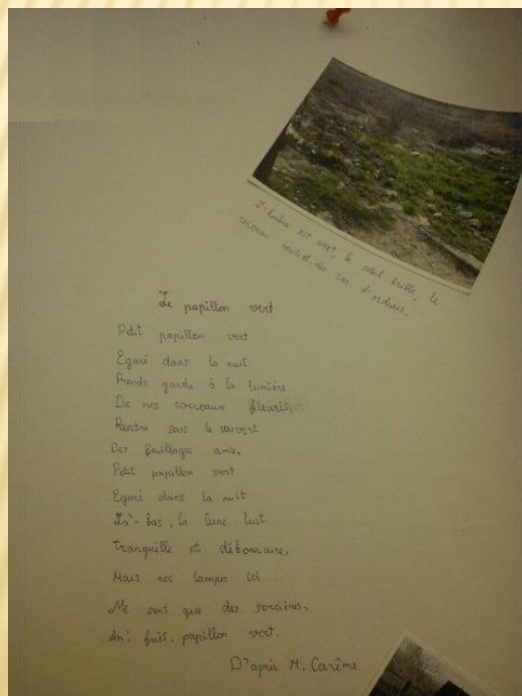 L'herbe est vert, le soleil brille, le
ruisseau coule et des tas d'ordures.
Le papillon vert
Petit papillon vert
Egaré dans la nuit
Prends garde à la lumière
De nos carreaux fleuris,
Rentre sous le couvert
Des feuillages amis,
Petit papillon vert
Egaré dans la nuit
Là-bas, la lune luit
tranquille et débonnaire,
Mais nos lampes ici
Ne sont que des sorcières,
Ah! fuis, papillon vert.
D'après M. Carême